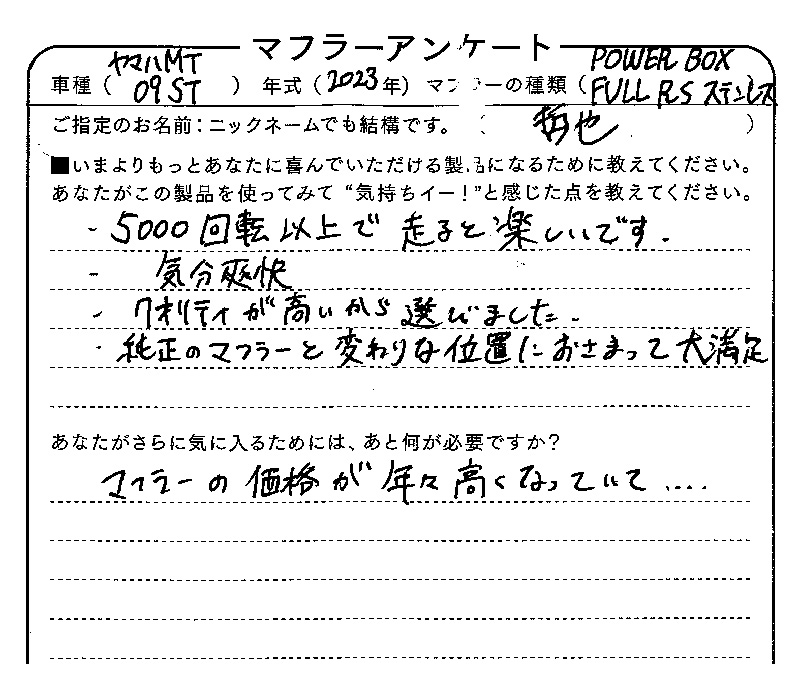 マフラーアンケート
車種（ヤマハMT 09ST） 年式（2023年）マフラーの種類（POWER BOX FULL RS ステンレス
ご指定のお名前：ニックネームでも結構です。（ 哲也 ）
■いまよりもっとあなたに喜んでいただける製品になるために教えてください。
あなたがこの製品を使ってみて“気持ちイー！”と感じた点を教えてください。
- 5000回転以上で走ると楽しいです.
- 気分爽快
- クオリティが高いから選びました.
・純正のマフラーと変わりな位置におさまって大満足
あなたがさらに気に入るためには、あと何が必要ですか？
マフラーの価格が年々高くなっていて....